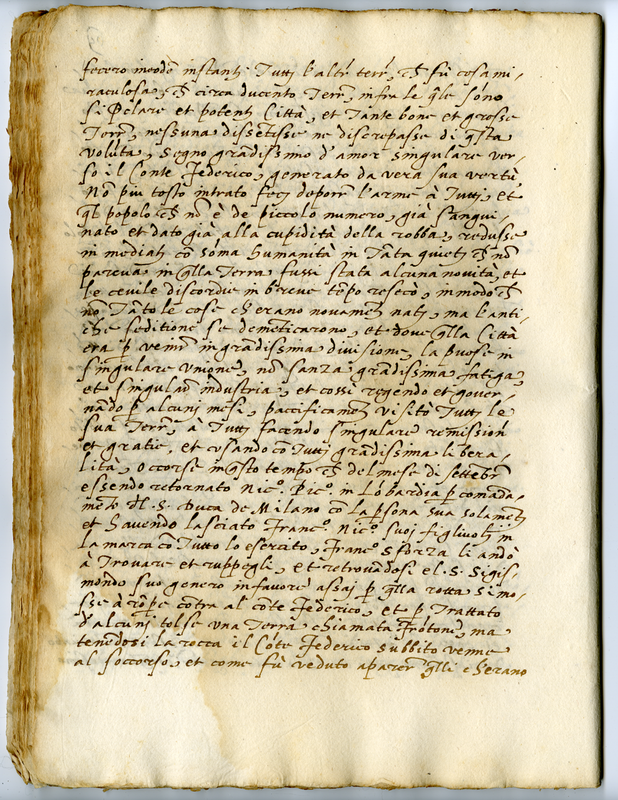 fecero in modo instanti. Tutti l'altr terr, ch fù cosa mi-
raculosa, ch circa ducento Terr, infra le qle sono
si pclare et potenti Città, et Tante bone et grosse
Terr, nessuna dissetisse ne discrepasse di qsta
volutà, segno gradissimo d'amor singulare ver-
so il Conte Federico, generato da vera sua vertù,
Nō piu tosto intrato fecj deporr l'arme à Tuttj, et
ql popolo ch nō è de piccolo numero, già sangui-
nato et dato già alla cupidità della robba, redusse
in mediatj cō sōma humanità in Tāta quietj ch nō
pareva in qlla Terra fussi stata alcuna novità, et
le cevile discordie in breve tēpo resecò, in modo ch
nō Tāto le cose ch'erano novamen natj, ma l'anti-
che seditione se demeticarono, et dove qlla Città
era p venir in grādissima divisione, la puose in
singulare unione, nō sanza grādissima fatiga,
et singular industria, et cossi regendo et gover-
nādo p alcunj mesi, paccificamen visitò Tuttj le
sua Terr, à Tuttj facendo singulare remission
et gratie, et usando cō Tuttj grādissima libera-
lità, Occorse in qsto tempo ch del mese di settebr
essendo retornato Nicº. Picº. in Lōbardia p comāda-
mēto dl .S. Duca de Milano cō la psona sua solamen
et havendo lasciato Francº. Nicº suoj figlivolj in
la marca cō Tutto lo esercito, Francº sforza li andò
à Trovare et ruppegli, et retrovādosi el .S. Sigis-
mondo suo genero in favore assaj p qlla rotta si mo-
sse à rōpe cōtra al cōte Federico, et p Trattato
d'alcunj tolse una Terra chiamata Frōtonj, ma
tenēdosi la rocca il Cōte Federico subbito venne
al soccorso, et come fù veduto aparer qlli ch'erano